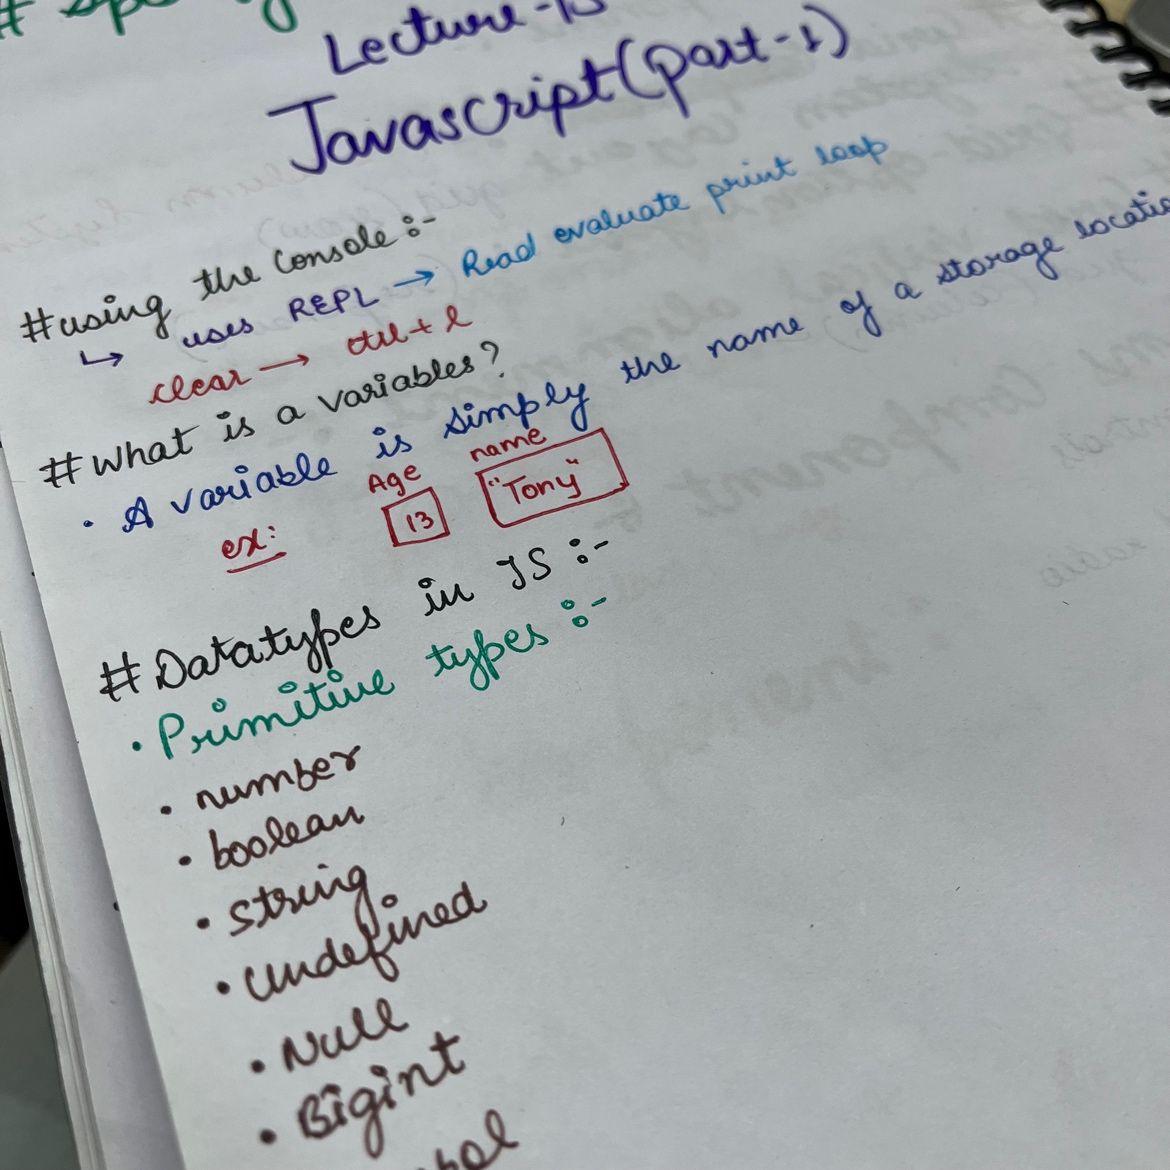 Lecture-13
Javascript(part-1)
#using the Console:-
↳ uses REPL → Read evaluate print loop
clear → ctrl + l
#What is a variables?
• A variable is simply the name of a storage locatio
Age name
ex: 13 "Tony"
#Datatypes in JS :-
• Primitive types :-
• number
• boolean
• string
• undefined
• Null
• Bigint